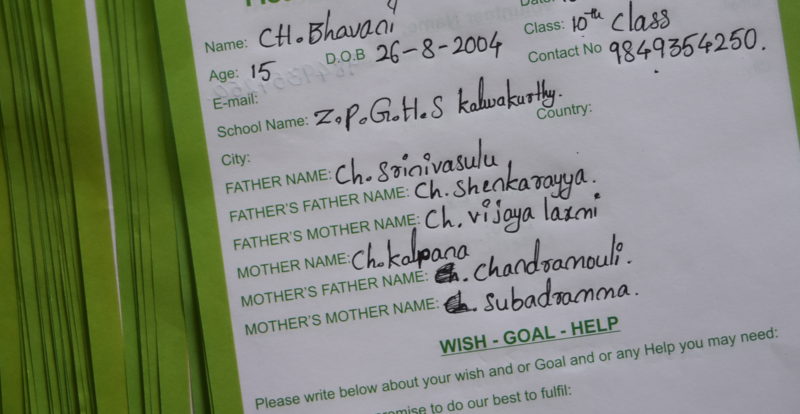 Name: CH. Bhavani
Class: 10th class
Age: 15 D.O.B 26-8-2004 Contact No 9849354250.
E-mail:
School Name: Z.P.G.H.S kalwakurthy. Country:
City:
FATHER NAME: Ch. Srinivasulu
FATHER'S FATHER NAME: Ch. Shenkarayya.
FATHER'S MOTHER NAME: Ch. vijaya laxmi
MOTHER NAME: Ch. kalpana
MOTHER'S FATHER NAME: . chandramouli.
MOTHER'S MOTHER NAME: . Subadramma.
WISH - GOAL - HELP
Please write below about your wish and or Goal and or any Help you may need:
to do our best to fulfil: